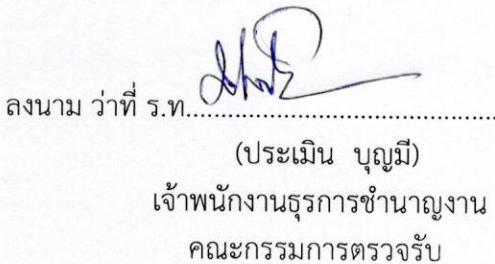 ลงนาม ว่าที่ ร.ท.......................................
(ประเมิน บุญมี)
เจ้าพนักงานธุรการชำนาญงาน
คณะกรรมการตรวจรับ